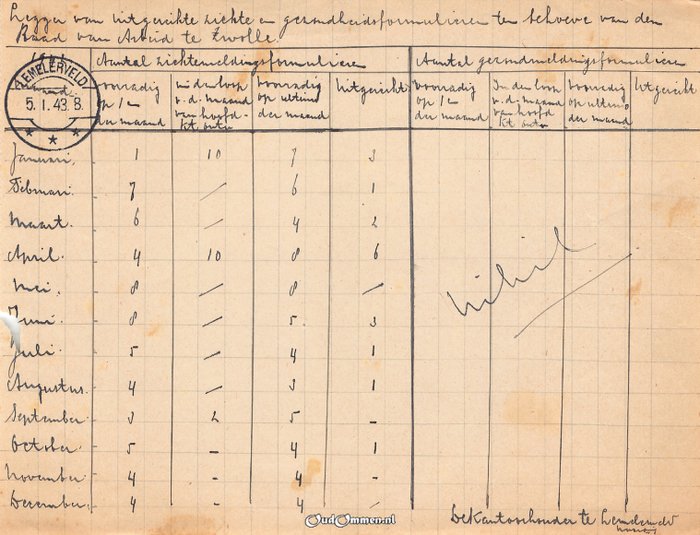 Legger van uitgereikte ziekte en gezondheidsformulieren ten behoeve van den
Raad van Arbeid te Zwolle.
LEMELERVELD
5.1.43.8.
Aantal ziektemeldingsformulieren Aantal gezondmeldingsformulieren
voorradig op 1e der maand
in den loop v.d. maand van hoofdkt. ontv.
voorradig op ultimo der maand
Uitgereikt
voorradig op 1e der maand
In den loop v.d. maand van hoofd kt. ontv.
voorradig op ultimo der maand
Uitgereikt
Januari. 1 10 7 3
Februari. 7 / 6 1
Maart 6 / 4 2
April. 4 10 8 6
Mei. 8 / 8 /
Juni. 8 / 5 3
Juli. 5 / 4 1
Augustus. 4 / 3 1
September. 3 2 5 -
October. 5 - 4 1
November. 4 - 4 -
December. 4 - 4 /
nihil
De Kantoorhouder te
OudOmmen.nl